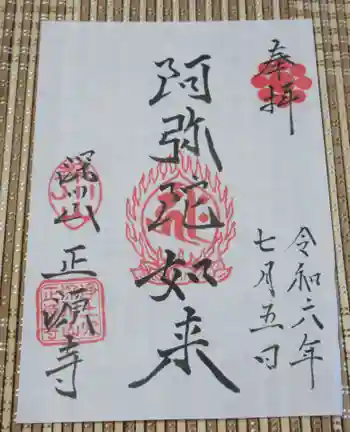 奉拝
令和六年
七月五日
阿弥陀如来
正源寺